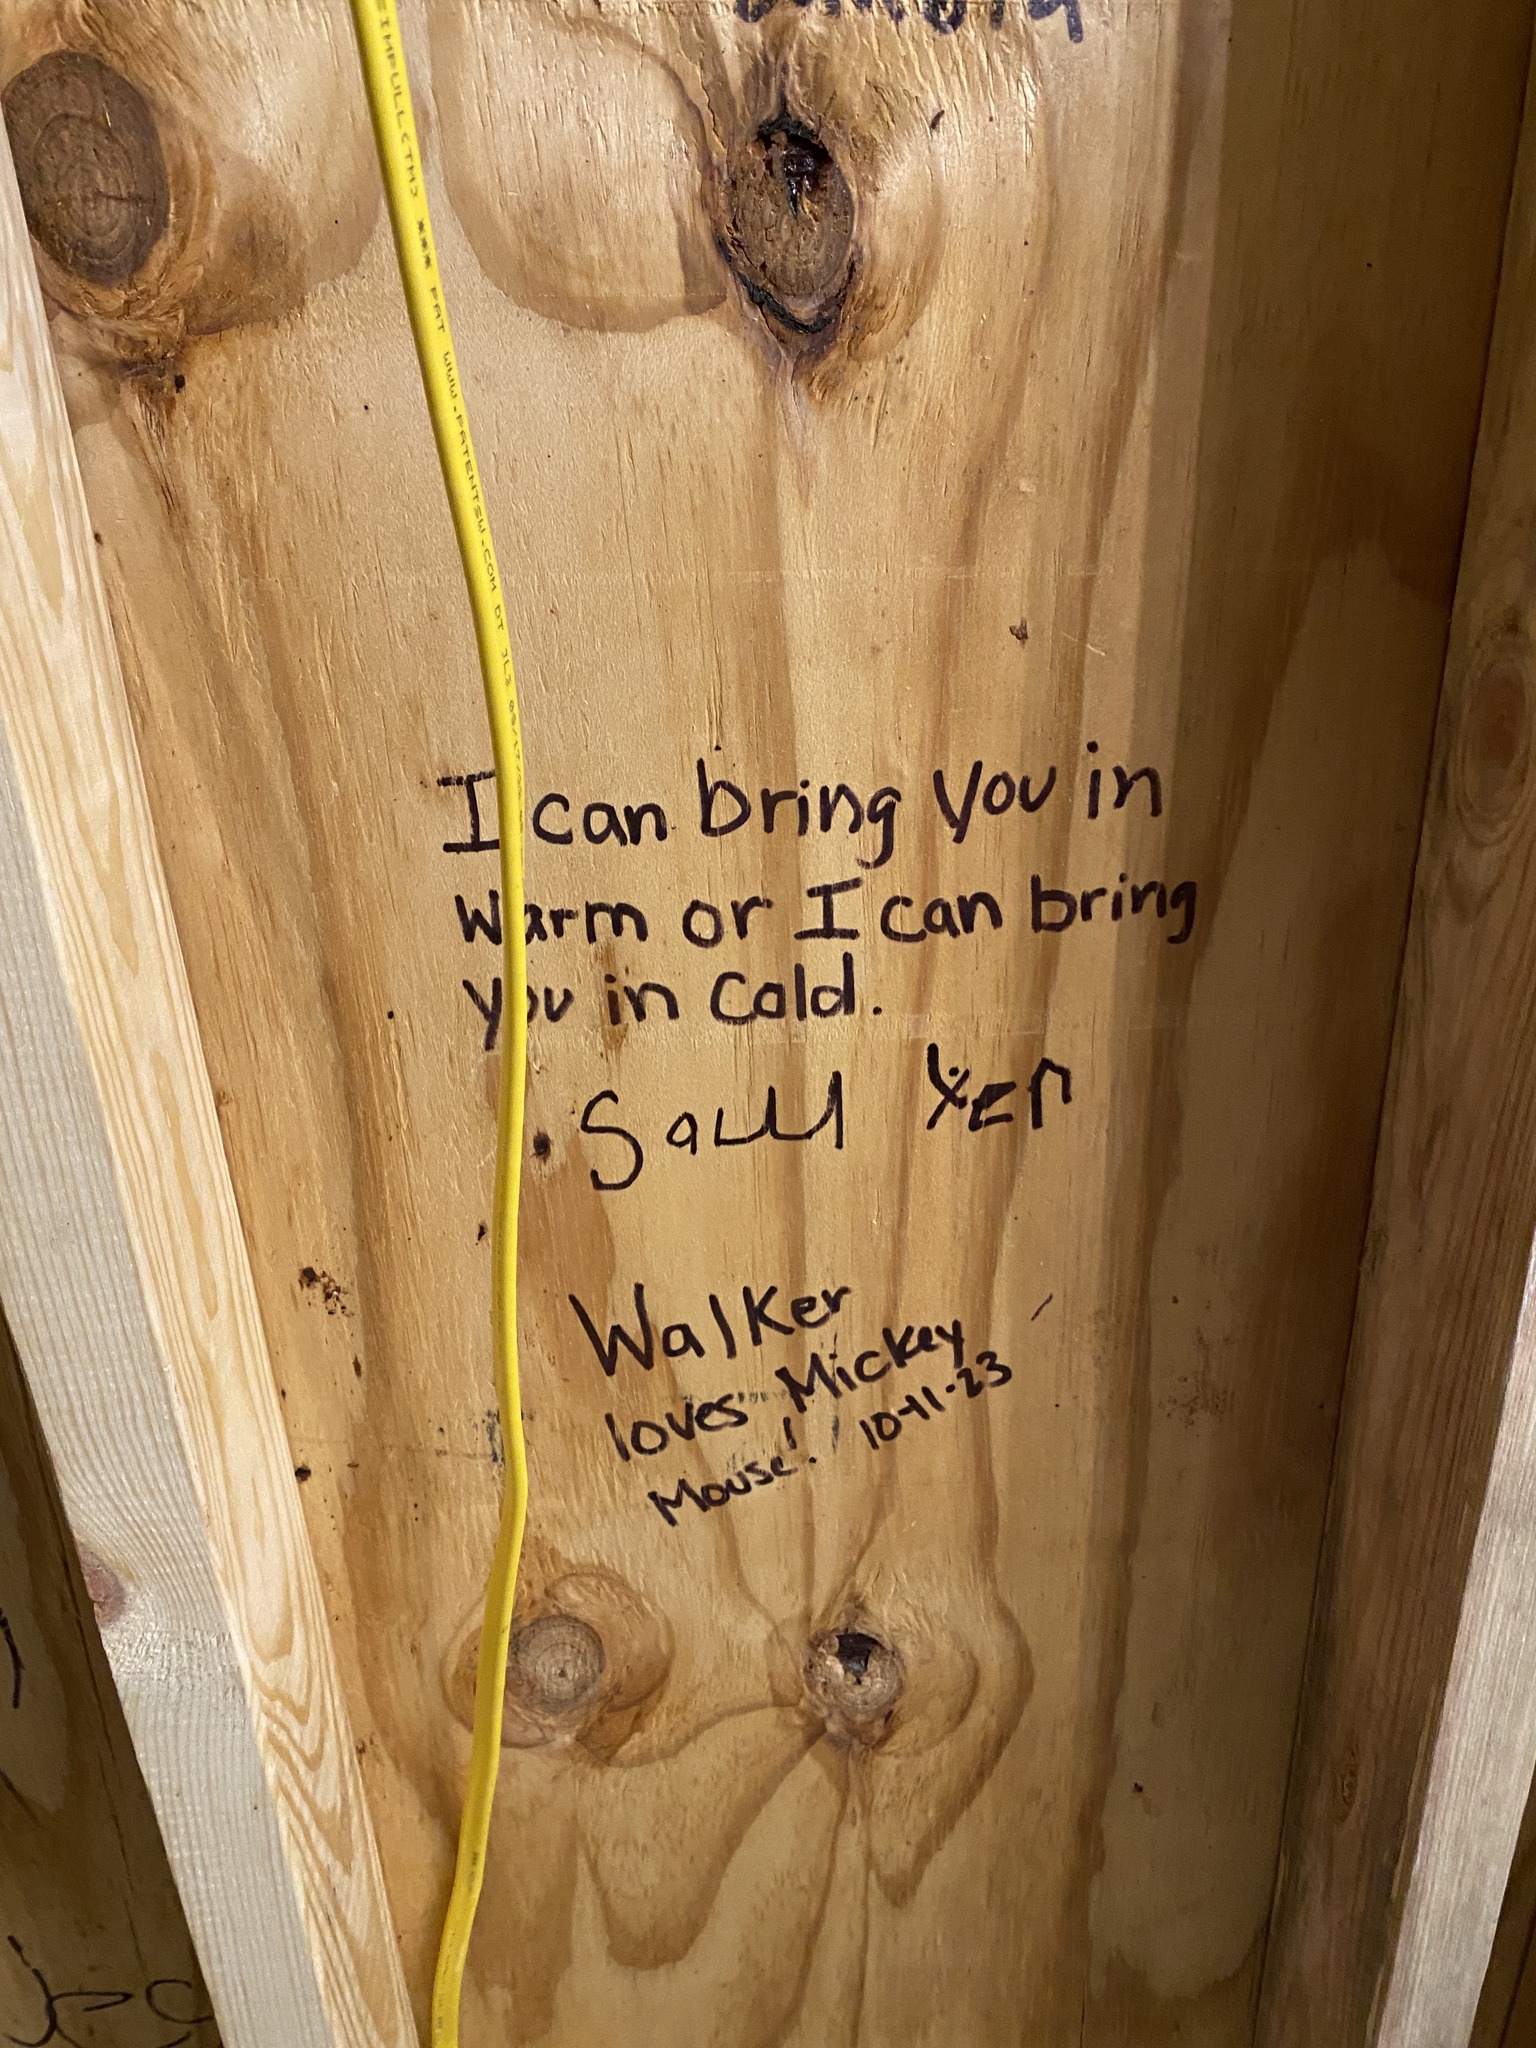 SIMPULL(TM) *** PAT WWW.PATENTSW.COM DT JL3
I can bring you in
warm or I can bring
you in cold.
Walker
loves Mickey
Mouse! 10-11-23